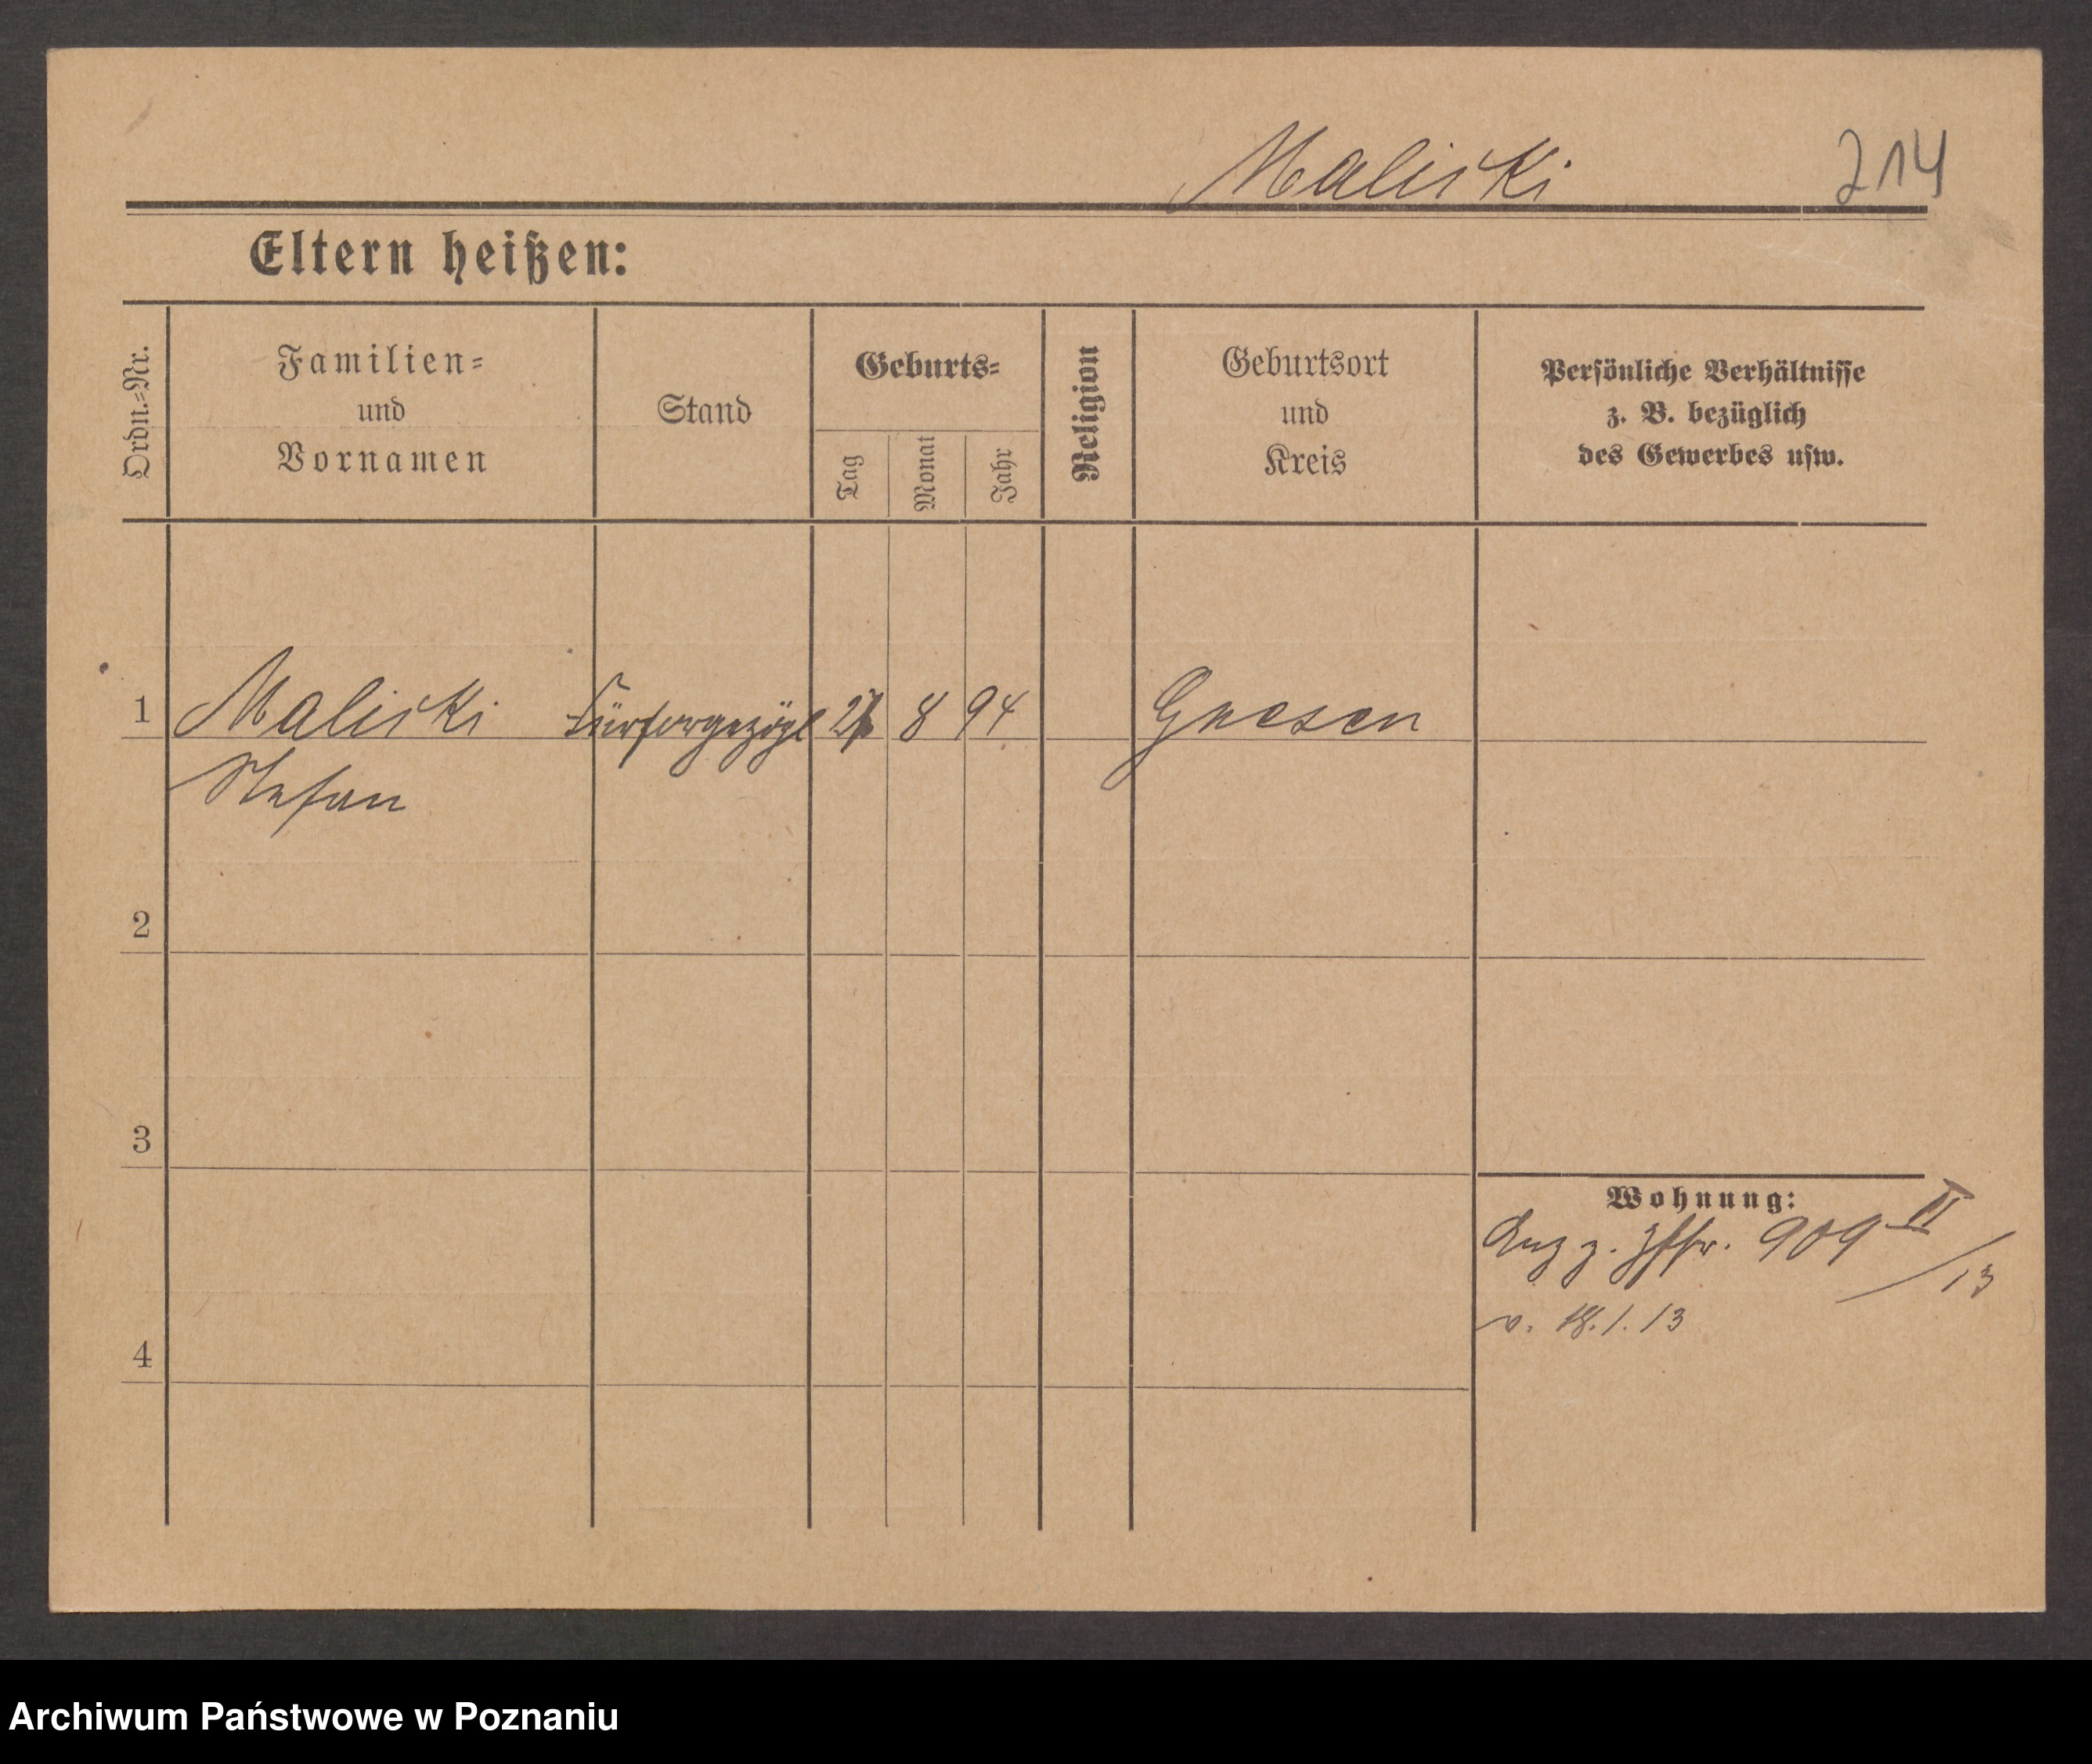 Maliski 214
Eltern heißen:
Ordn.=Nr.
Familien=
und
Vornamen
Stand
Geburts=
Tag
Monat
Jahr
Religion
Geburtsort
und
Kreis
Persönliche Verhältnisse
z. B. bezüglich
des Gewerbes usw.
1 Maliski Fürsorgezögl 8 94 Gnesen
Stefan
2
3
Wohnung:
z. 909 II/13
v. 18.1.13
4
Archiwum Państwowe w Poznaniu